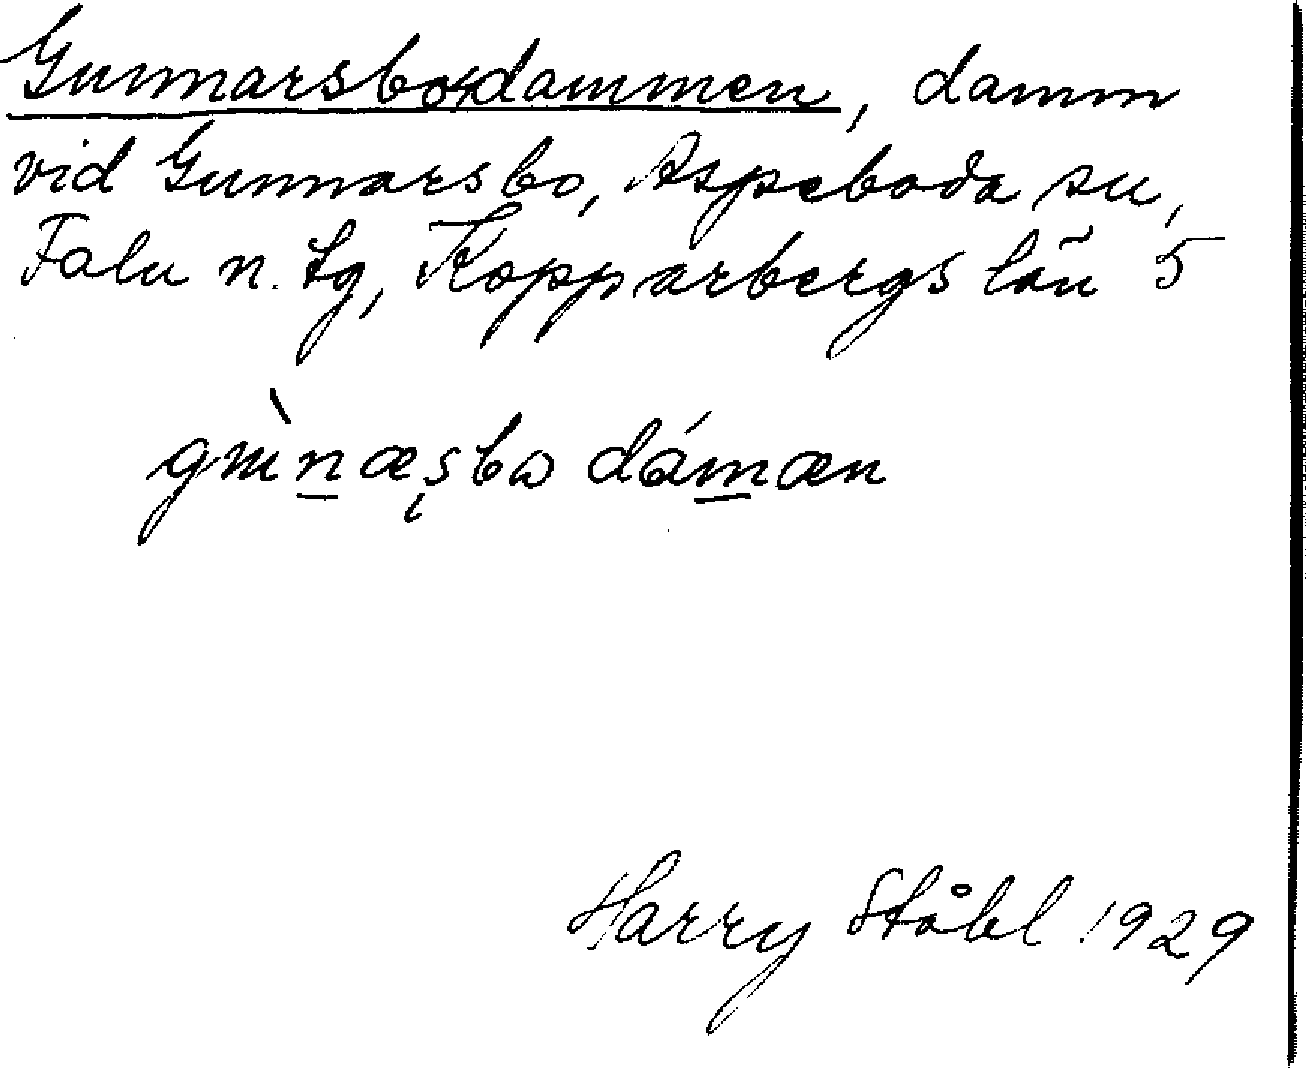 Gunnarsbodammen, damm
vid Gunnarsbo, Aspeboda sn,
Falu n. tg, Kopparbergs län 5
Harry Ståhl 1929